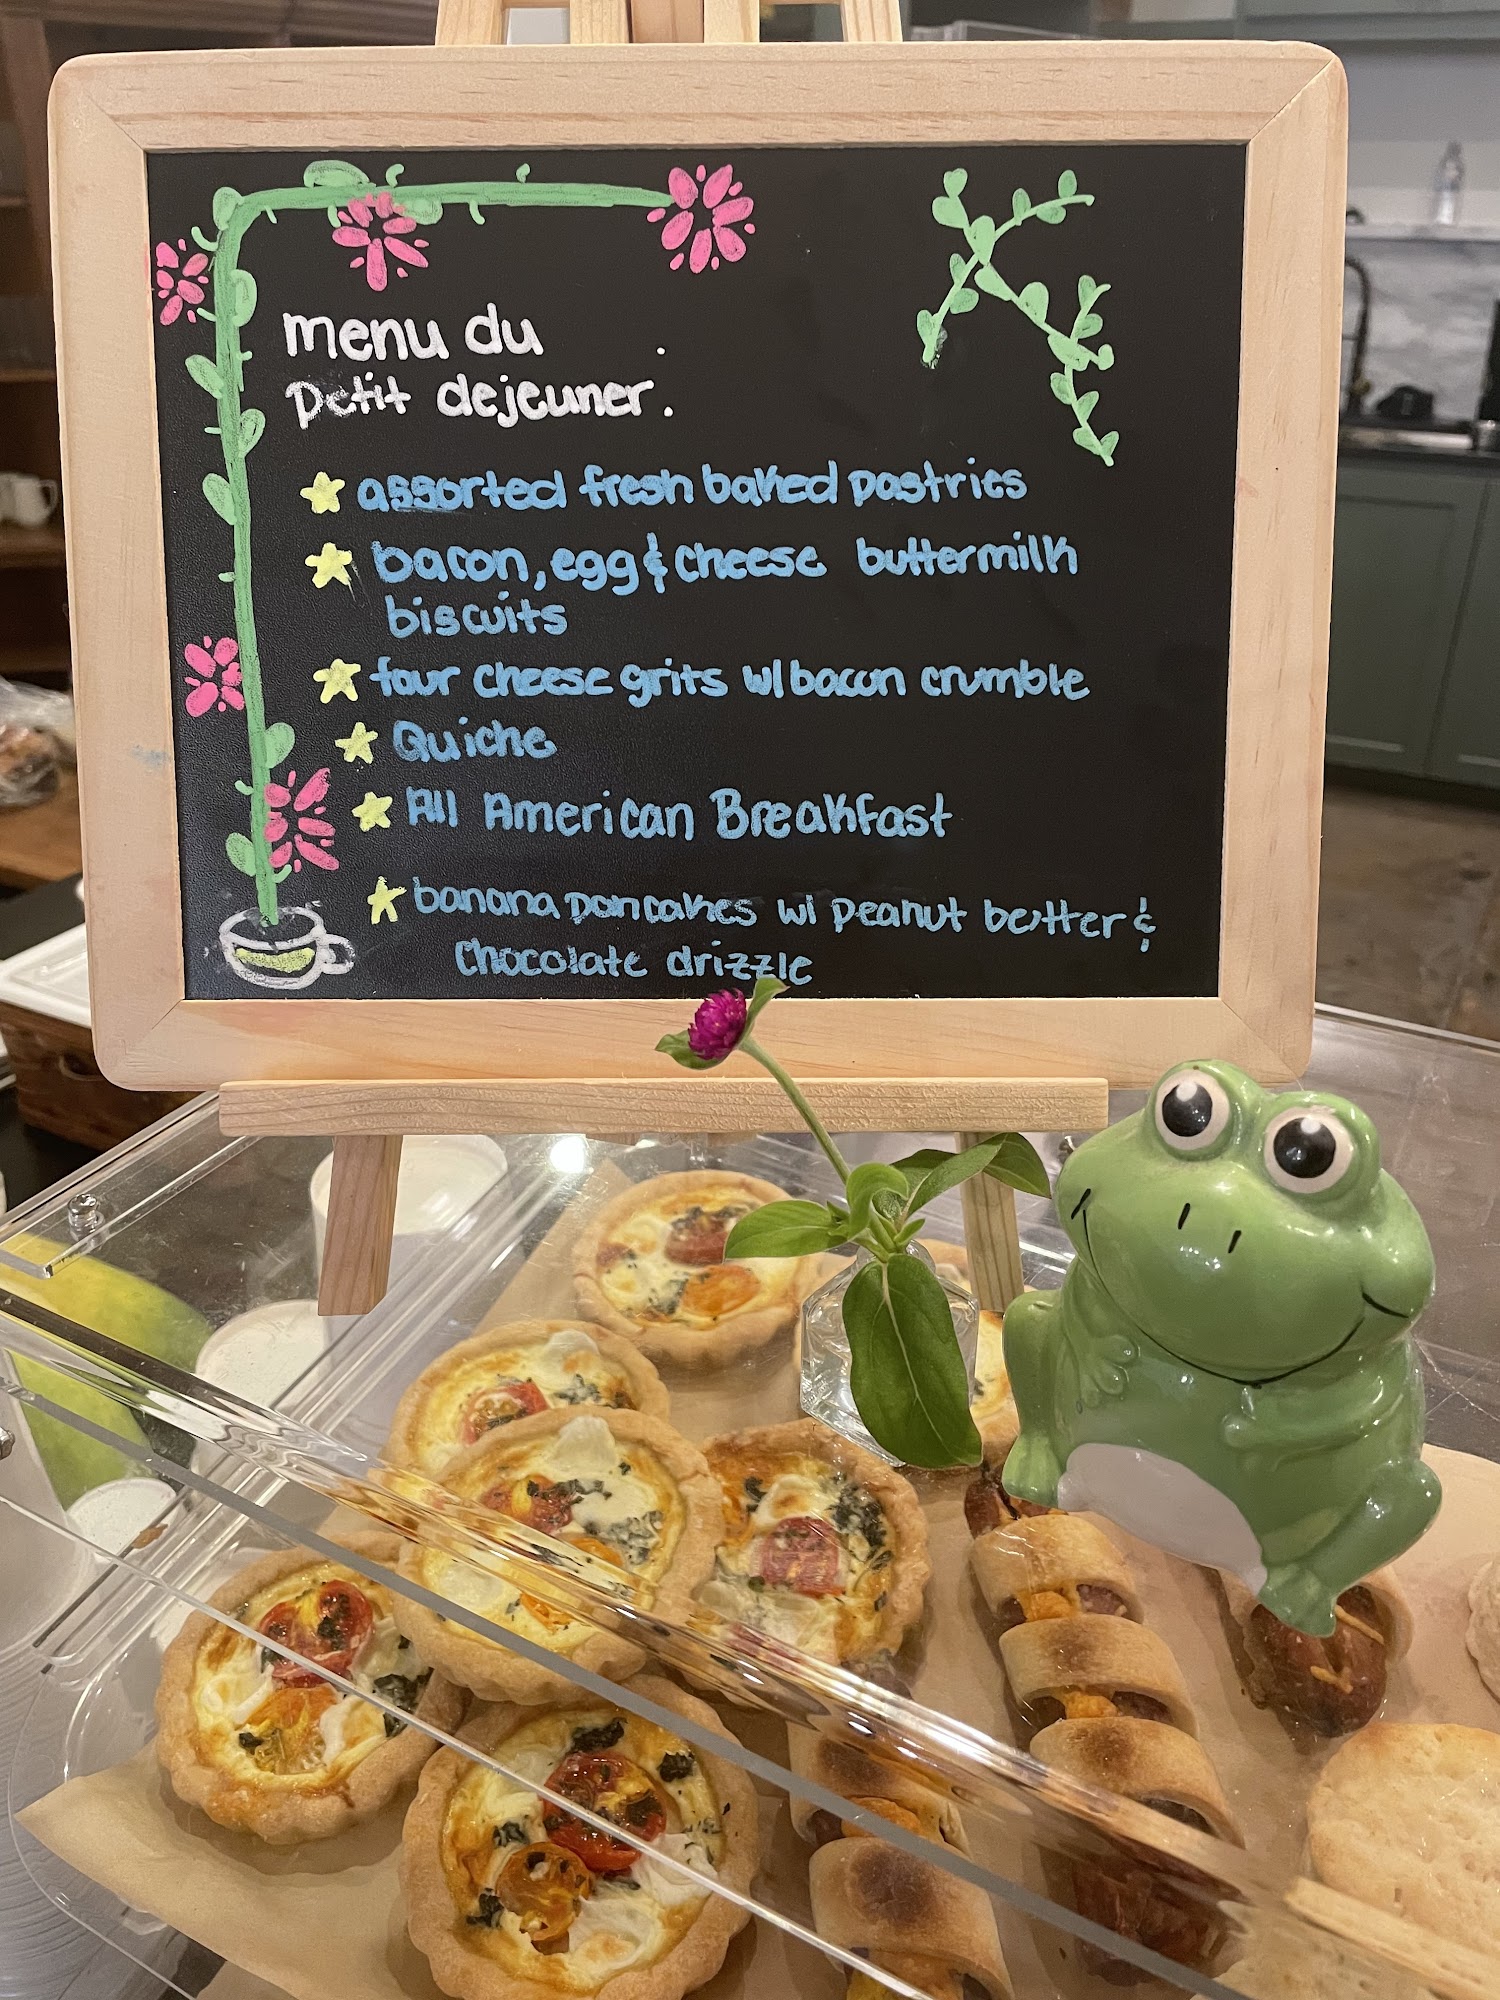 menu du
Petit dejeuner.
assorted fresh baked pastries
bacon, egg & cheese buttermilk
biscuits
four cheese grits w/ bacon crumble
Quiche
All American Breakfast
banana pancakes w/ peanut butter &
chocolate drizzle